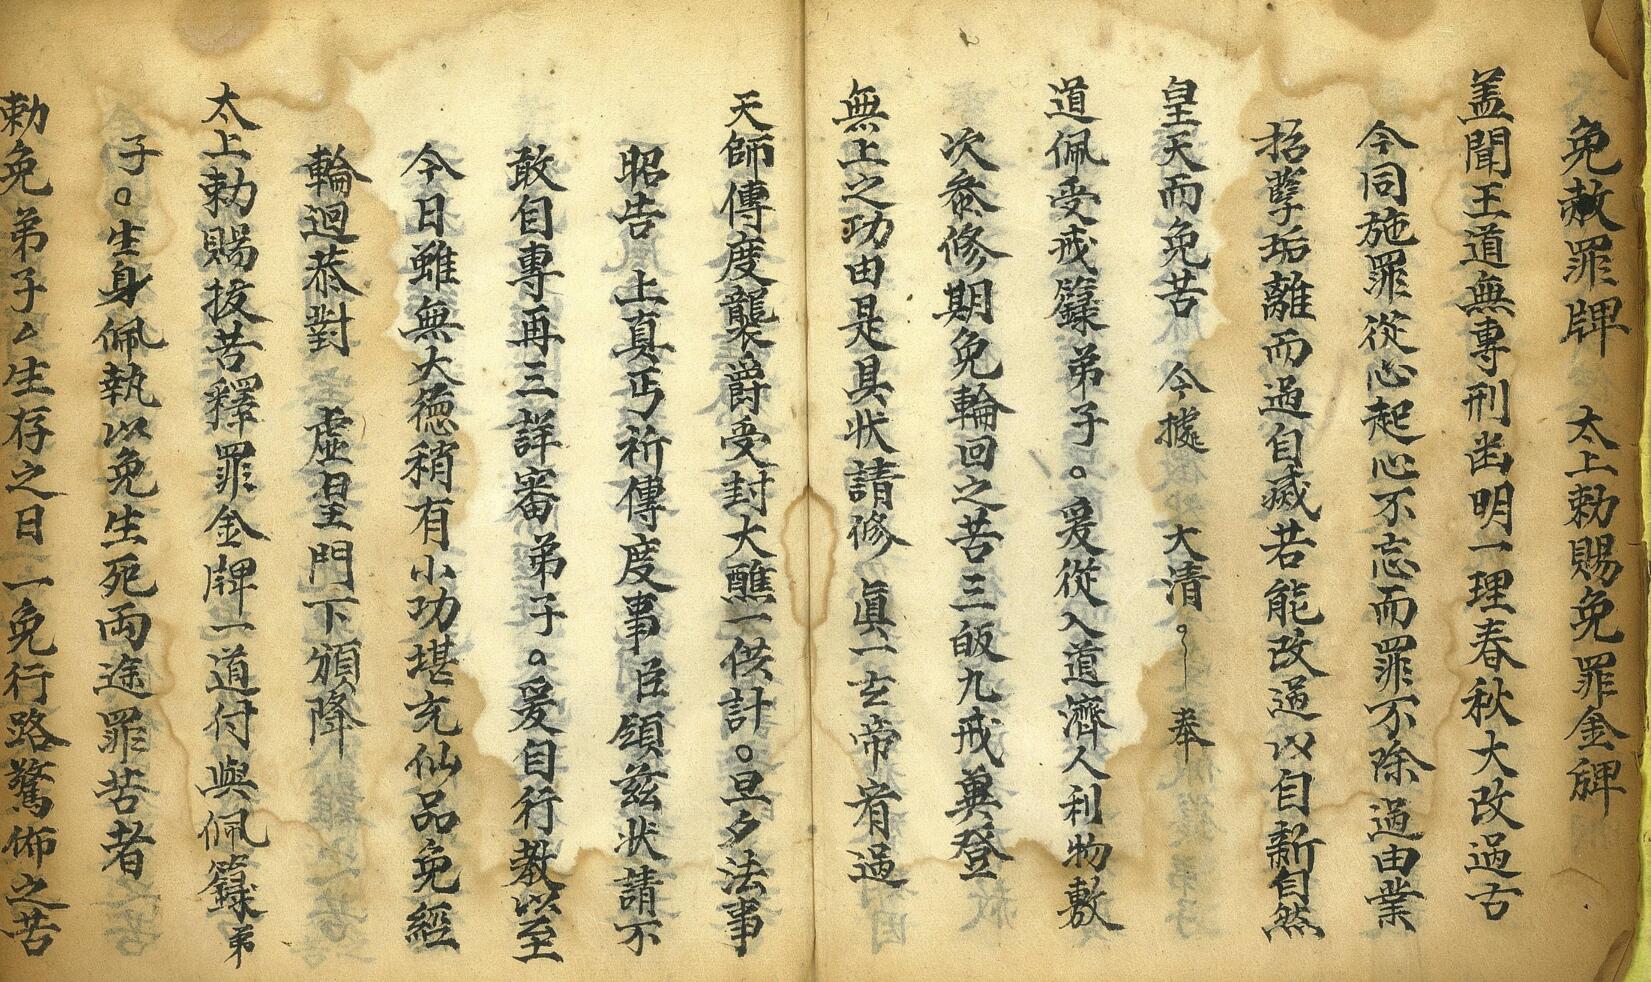 免赦罪牌　太上勅賜免罪金牌
盖聞王道無專刑凼明一理春秋大改過古
今同施罪從心起心不忘而罪不除過由業
招孽垢離而過自滅若能改過以自新自然
皇天而免苦　今據　大清。　奉
道佩受戒籙弟子。爰從入道濟人利物敷
次叅修期免輪回之苦三皈九戒冀登
無上之功由是具状請修　眞一玄帝宥過
天師傳度襲爵受封大醮一供計。旦夕法事
昭告　上真丐祈傳度事臣領兹状請不
敢自專再三詳審弟子。爰自行教以至
今日雖無大德稍有小功堪充仙品免經
輪迴恭對　虛皇門下頒降
太上勅賜拔苦釋罪金牌一道付與佩籙弟
子。生身佩執以免生死両途罪苦者
勅免弟子厶生存之日一免行路驚怖之苦